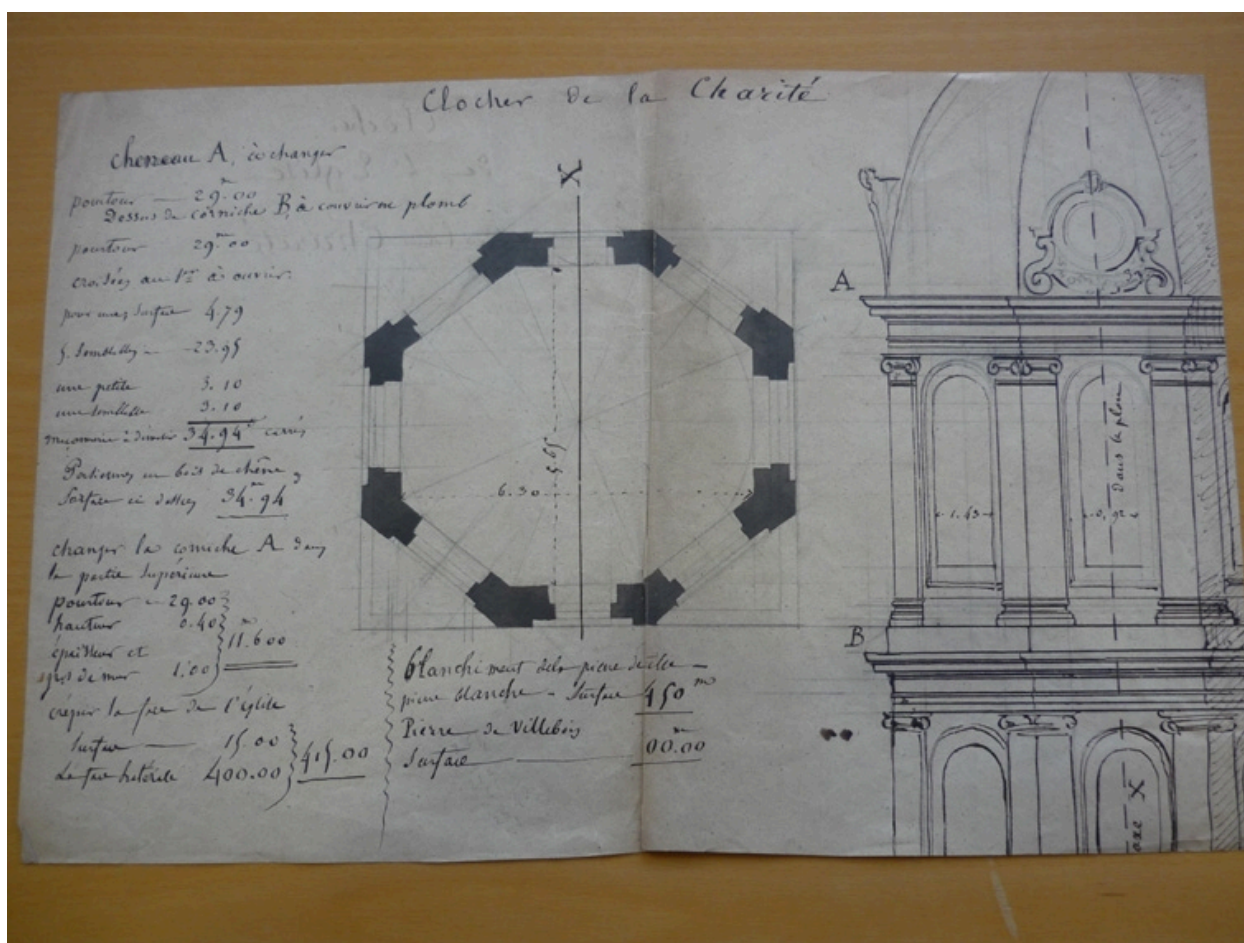 Clocher de la Charité
cheneau A, à changer
pourtour — 29.m00
Dessus de corniche B, à couvrir ne plomb
pourtour 29.m00
croisées au 1er à ouvrir.
pour une surface 4.79
5. semblables — 23.95
une petite 3.10
une semblable 3.10
maçonnerie à démolir 34.94 carrés
en bois de chêne
Surface ci dessus 34.m94
changer la corniche A dans
la partie supérieure
pourtour — 29.00
hauteur 0.40
épaisseur et
gros de mur 1.00
11.m600
crépir la face de l'église
Surface — 15.00
La face latérale 400.00
415.00
blanchiment de la pierre de taille —
pierre blanche — Surface 450 m
Pierre de Villebois
Surface — 00.m00
X
5.65
6.30
A
B
1.43
0.92
Dans le plan
axe X